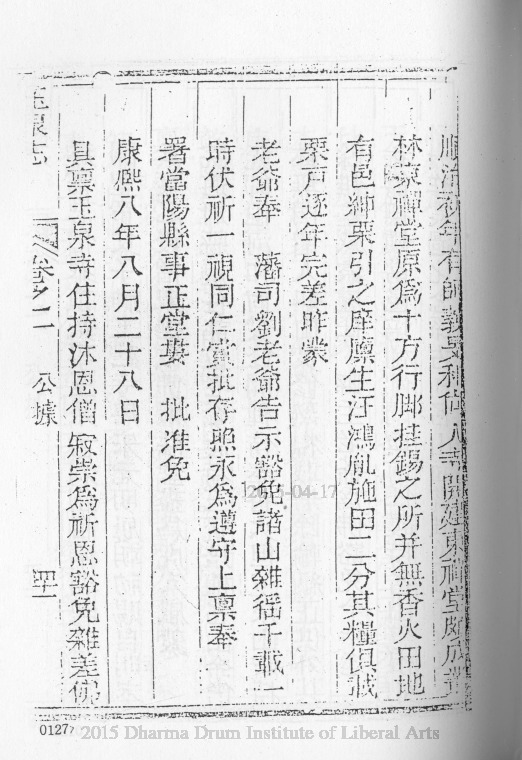 順治初年有師義叟和尚入寺開建東禪堂頗成叢
林東禪堂原為十方行脚挂錫之所并無香火田地
有邑紳栗引之庠廪生汪鴻胤施田二分其糧俱載
栗戶逐年完差昨蒙
老爺奉 藩司劉老爺告示豁免諸山雜徭千載一
時伏祈一視同仁賞批存照永為遵守上禀奉
署當陽縣事正堂婁 批准免
康熈八年八月二十八日
具禀玉泉寺住持沐恩僧寂崇為祈恩豁免雜差佛
玉泉志 卷之二 公據
2015-04-17
0127
2015 Dharma Drum Institute of Liberal Arts